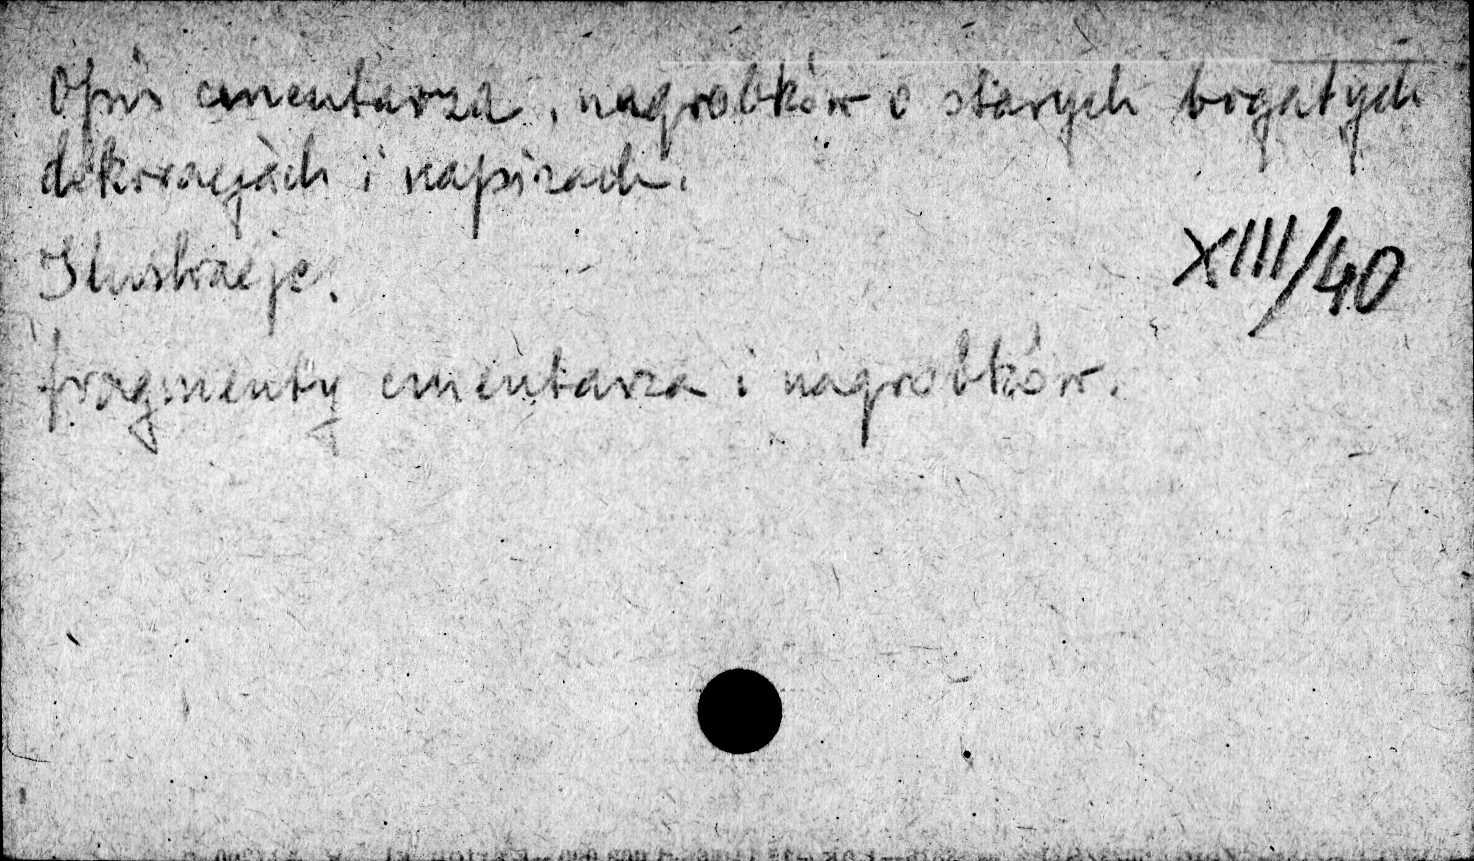 Opis cmentarza, nagrobków o starych bogatych
dekoracjach i napisach.
XIII/40
Ilustracje.
fragmenty cmentarza i nagrobków.